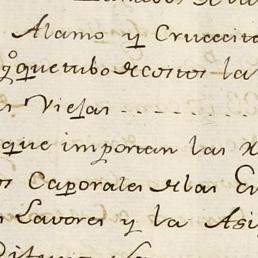 Alamo y Cruecite
q.º que tubo de costos la
s Viejas
que importan las X
os Caporales de las En
s Lavores y la Asi